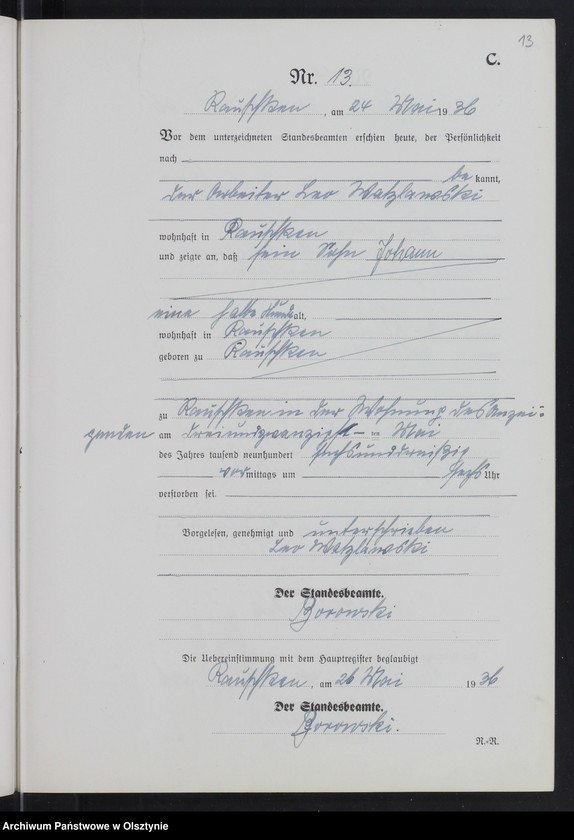 13
C.
Nr. 13.
Rauschken, am 24 Mai 1936
Vor dem unterzeichneten Standesbeamten erschien heute, der Persönlichkeit
nach
be kannt,
der Arbeiter Leo Watzlawski
wohnhaft in Rauschken
und zeigte an, daß sein Sohn Johann
eine halbe Stunde alt,
wohnhaft in Rauschken
geboren zu Rauschken
zu Rauschken in der Wohnung des Anzei-
genden am dreiundzwanzigst- en Mai
des Jahres tausend neunhundert sechsunddreißig
vormittags um sechs Uhr
verstorben sei.
Vorgelesen, genehmigt und unterschrieben
Leo Watzlawski
Der Standesbeamte.
Borowski
Die Uebereinstimmung mit dem Hauptregister beglaubigt
Rauschken, am 26 Mai 1936
Der Standesbeamte.
Borowski.
R.-R.
Archiwum Państwowe w Olsztynie